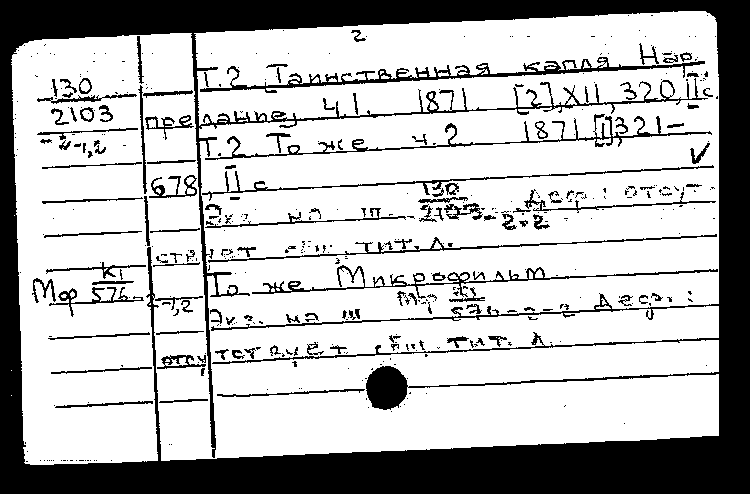 2
130 Т.2 Таинственная капля. Нар.
2103 предание, ч.1. 1871. [2],XII,320,IIс.
-2-1,2 Т.2. То же. ч.2 1871 [I],321-
678, II с.
Экз. на ш. 130/2103-2-2 Деф.: отсут-
ствует общ. тит. л.
Мф К1/576-2-1,2 То же. Микрофильм
Экз. на ш Мф К1/576-2-2 Деф.:
отсутствует общ. тит. л.